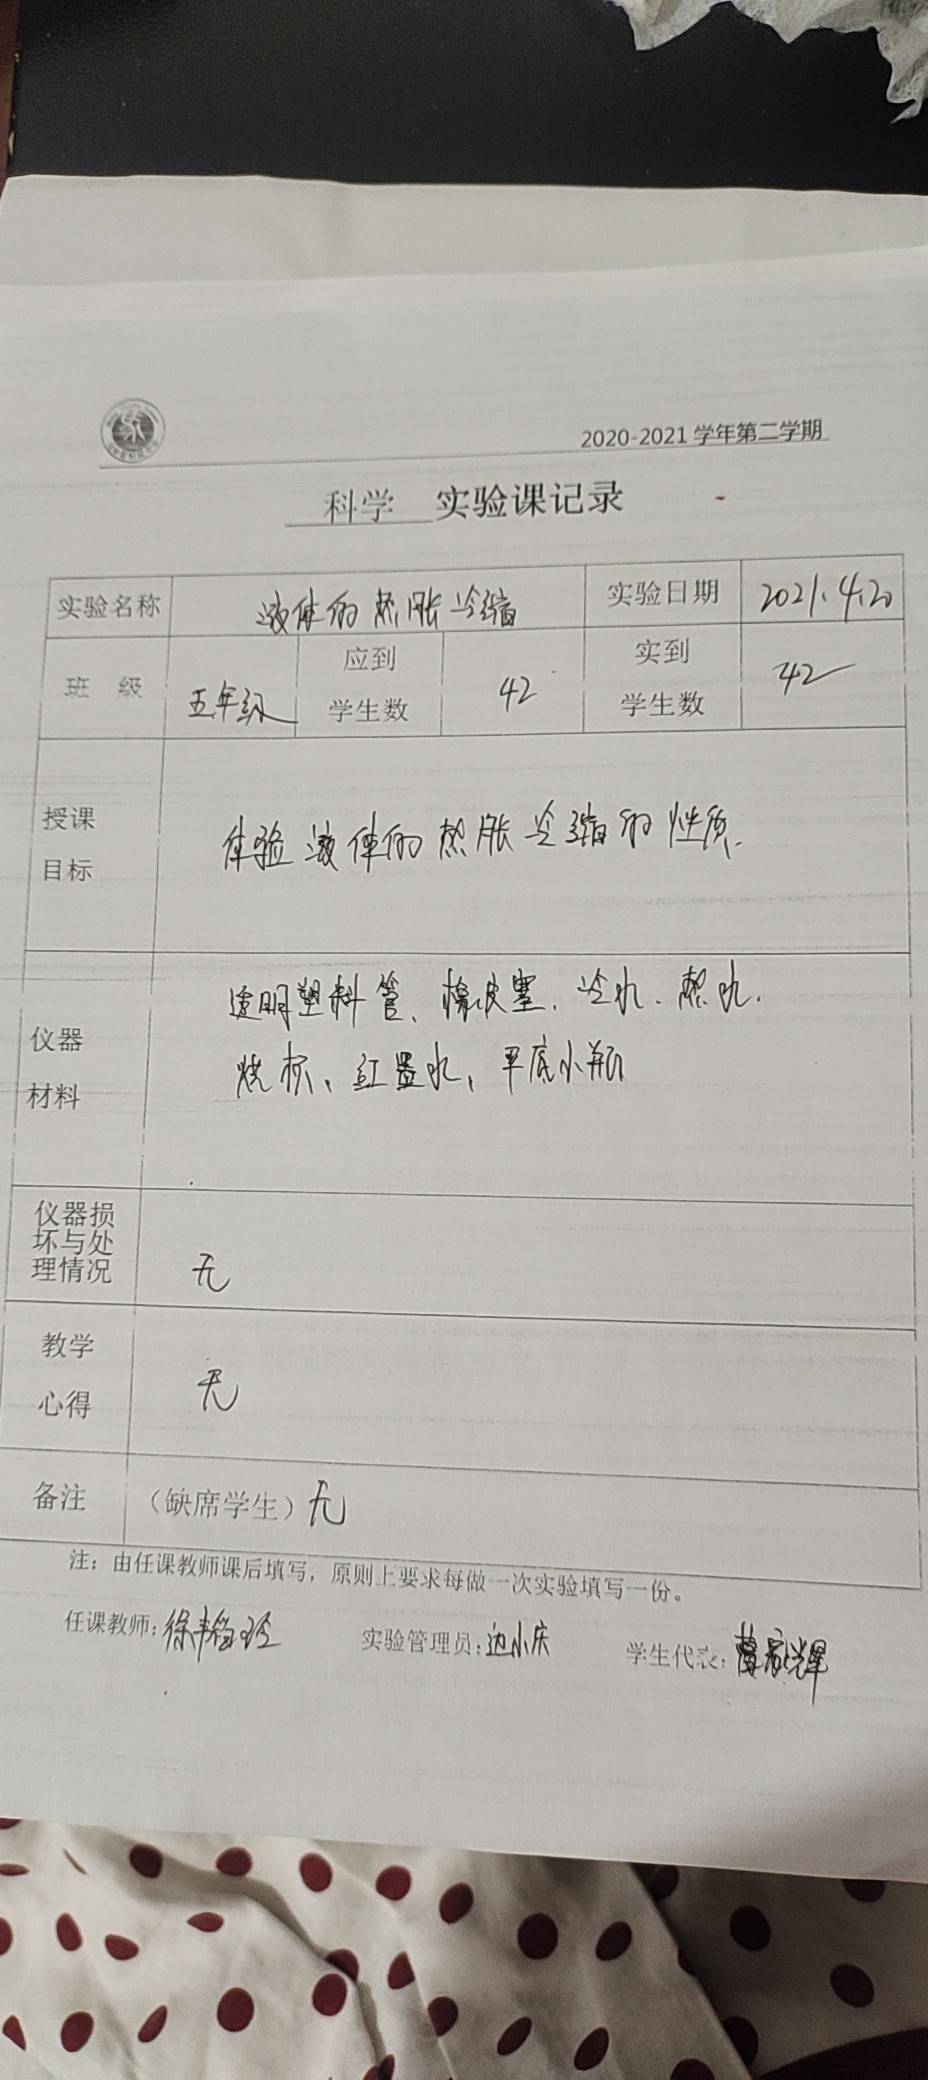 2020-2021 学年第二学期
科学 实验课记录
实验名称 液体的热胀冷缩 实验日期 2021.4.20
班 级 五年级 应到学生数 42 实到学生数 42
授课
目标
体验液体的热胀冷缩的性质.
仪器
材料
透明塑料管、橡皮塞、冷水、热水、
烧杯、红墨水、平底小瓶
仪器损
坏与处
理情况
无
教学
心得
无
备注 （缺席学生）无
注：由任课教师课后填写，原则上要求每做一次实验填写一份。
任课教师: 实验管理员:边小庆 学生代表: